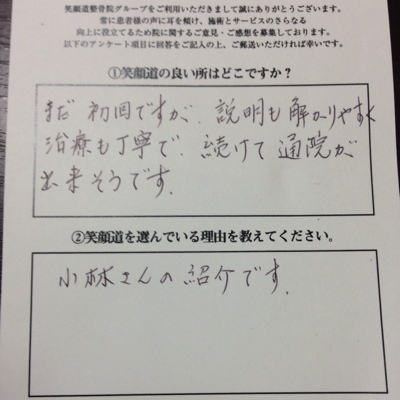 笑顔道整骨院グループをご利用いただきまして誠にありがとうございます。
常に患者様の声に耳を傾け、施術とサービスのさらなる
向上に役立てるため院に関するご意見・ご感想を募集しております。
以下のアンケート項目に回答をご記入の上、ご郵送いただければ幸いです。
①笑顔道の良い所はどこですか？
まだ初回ですが、説明も解かりやすく
治療も丁寧で、続けて通院が
出来そうです。
②笑顔道を選んでいる理由を教えてください。
小林さんの紹介です。